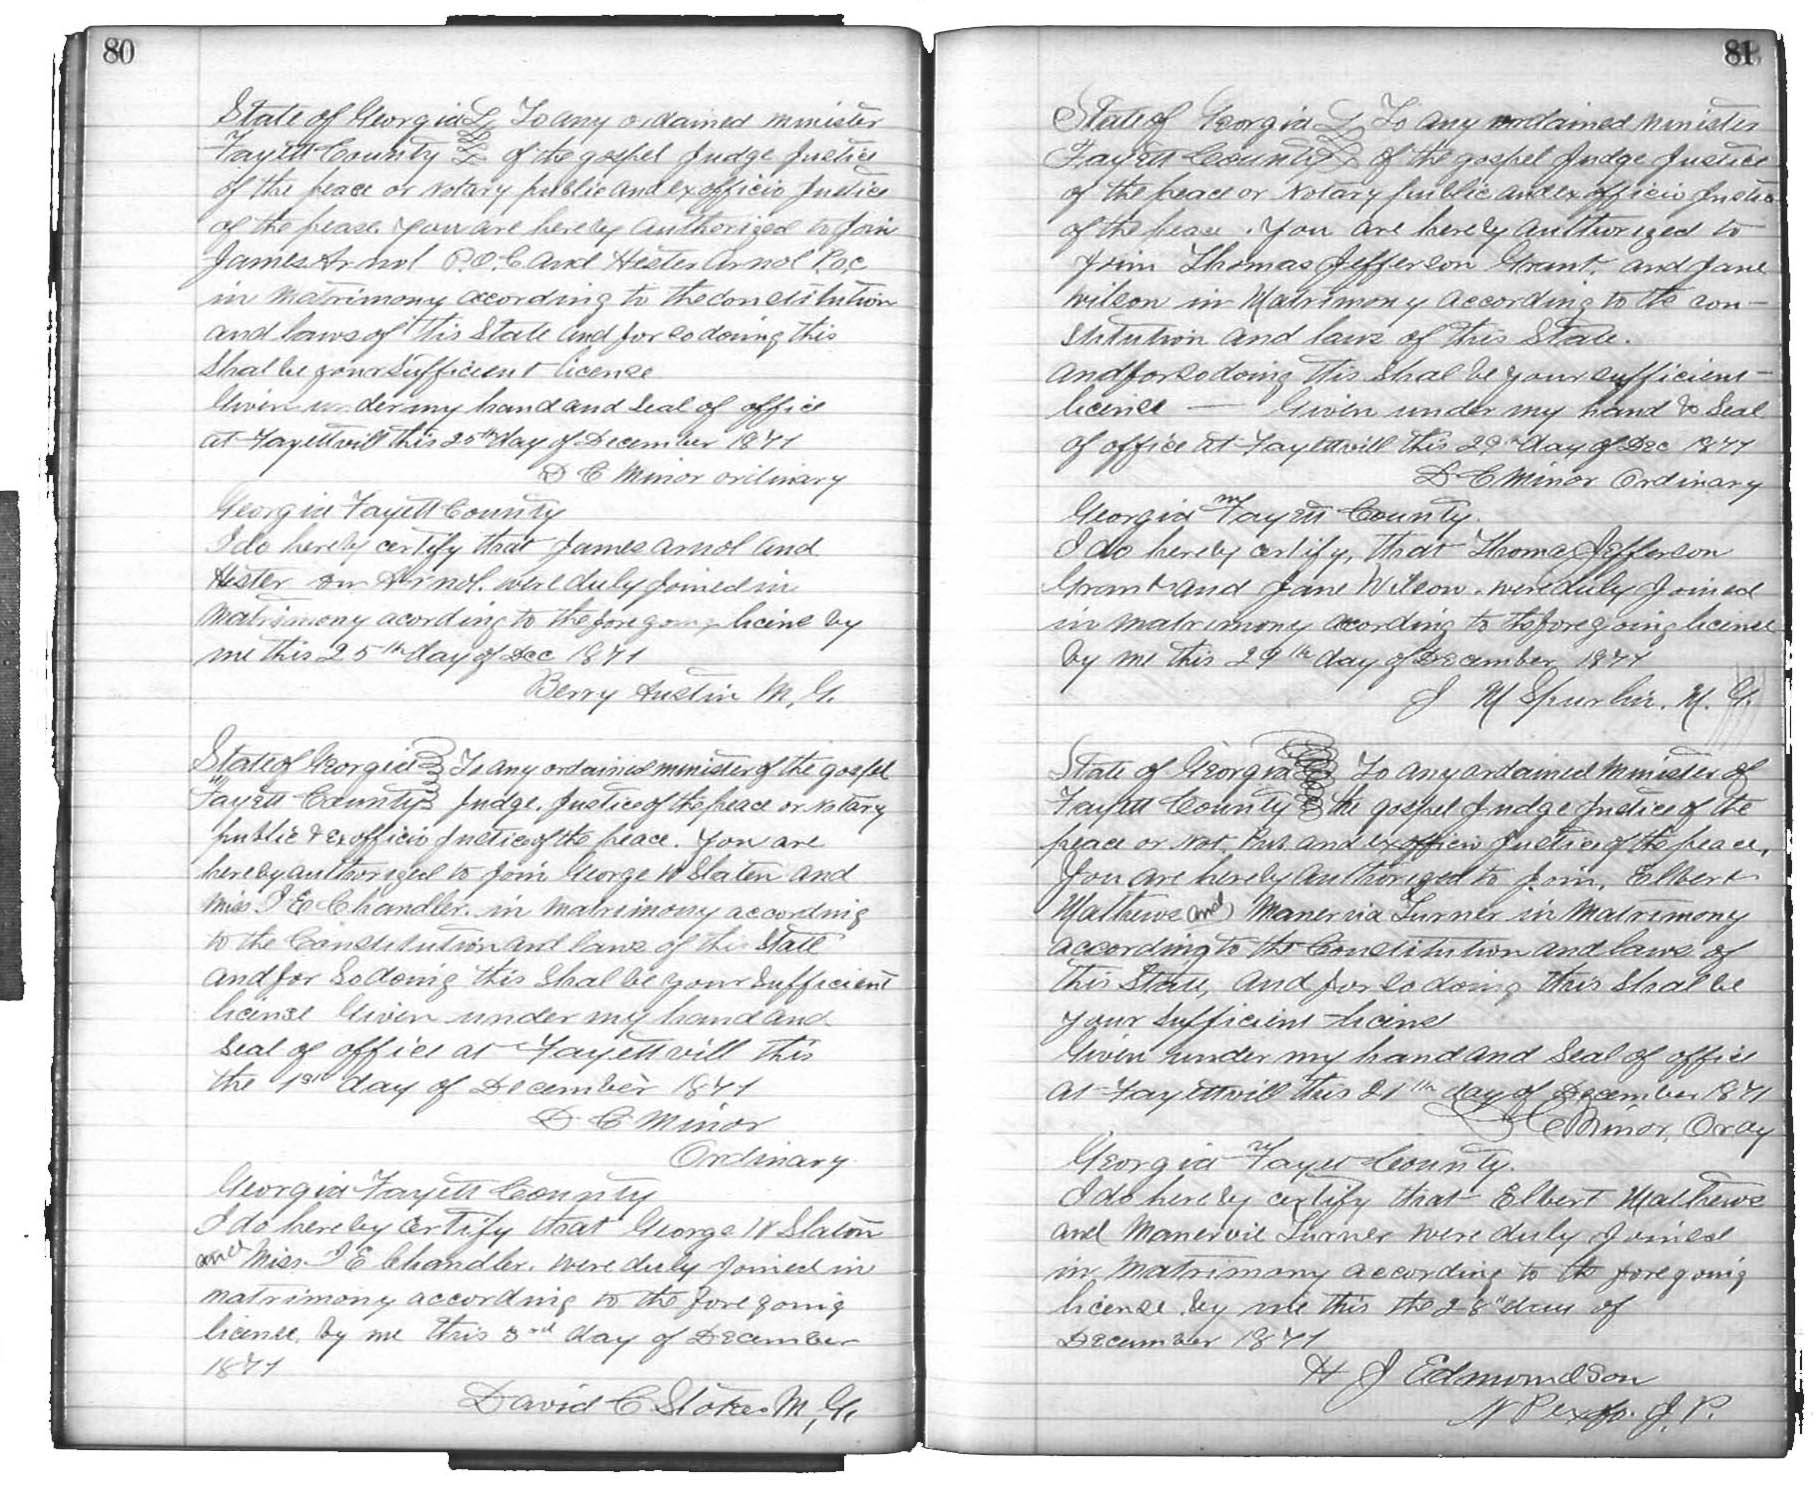 80
State of Georgia To any ordained minister
Fayett County of the gospel Judge Justice
of the peace or Notary public and ex officio Justice
of the pease. You are hereby authorized to Join
James Arnol P.O.C and Hester Arnol P.o.c
in matrimony according to the constitution
and laws of this State and for so doing this
Shal be your sufficient license
Given under my hand and Seal of office
at Fayettvill this 25th day of December 1871
D C Minor ordinary
Georgia Fayett County
I do hereby certify that James Arnol and
Hester Arnol. were duly Joined in
matrimony acording to the foregoing licine by
me this 25th day of Dec 1871
Berry Austin M, G.
State of Georgia To any ordained minister of the gospel
Fayett County Judge. Justice of the peace or Notary
public & ex officio Justice of the peace. You are
hereby authorized to Join George W Slaten and
Miss I E Chandler. in matrimony according
to the Constitution and laws of this State
and for So doing this Shal be your Sufficient
license Given under my hand and
Seal of office at Fayettvill this
the 1st day of December 1871
D C Minor
Ordinary
Georgia Fayett County
I do hereby certify that George W Slaton
and Miss I E Chandler. were duly Joined in
matrimony according to the foregoing
license. by me this 3rd day of December
1871
David C Stokes M, G.
81
State of Georgia To any ordained minister
Fayett County of the gospel Judge Justice
of the peace or Notary public and ex officio Justice
of the pease. You are hereby authorized to
Join Thomas Jefferson Grant. and Jane
Wilson in Matrimony according to the con-
stitution and laws of this State.
and for so doing this Shal be your sufficient
license — Given under my hand & Seal
of office at Fayettvill this 29th day of Dec 1871
D C Minor Ordinary
Georgia Fayett County.
I do hereby certify, that Thomas Jefferson
Grant and Jane Wilson. were duly Joined
in matrimony acording to the foregoing license
by me this 29th day of December 1871
J M Spurlin. M. G.
State of Georgia To any ordained Minister of
Fayett County the gospel Judge Justice of the
peace or Not. Pub. and ex officio Justice of the peace,
You are hereby authorized to Join, Elbert
Mathews and Manervia Turner in Matrimony
according to the Constitution and laws of
this State, and for so doing this Shal be
your sufficient licine
Given under my hand and Seal of office
at Fayettvill this 21th day of December 1871
D C Minor, Oray
Georgia Fayett County.
I do hereby certify that Elbert Mathews
and Manervie Turner were duly Joined
in Matrimony according to the foregoing
license by me this the 28th day of
December 1871
H J Edmondson
N P ex fo. J. P.